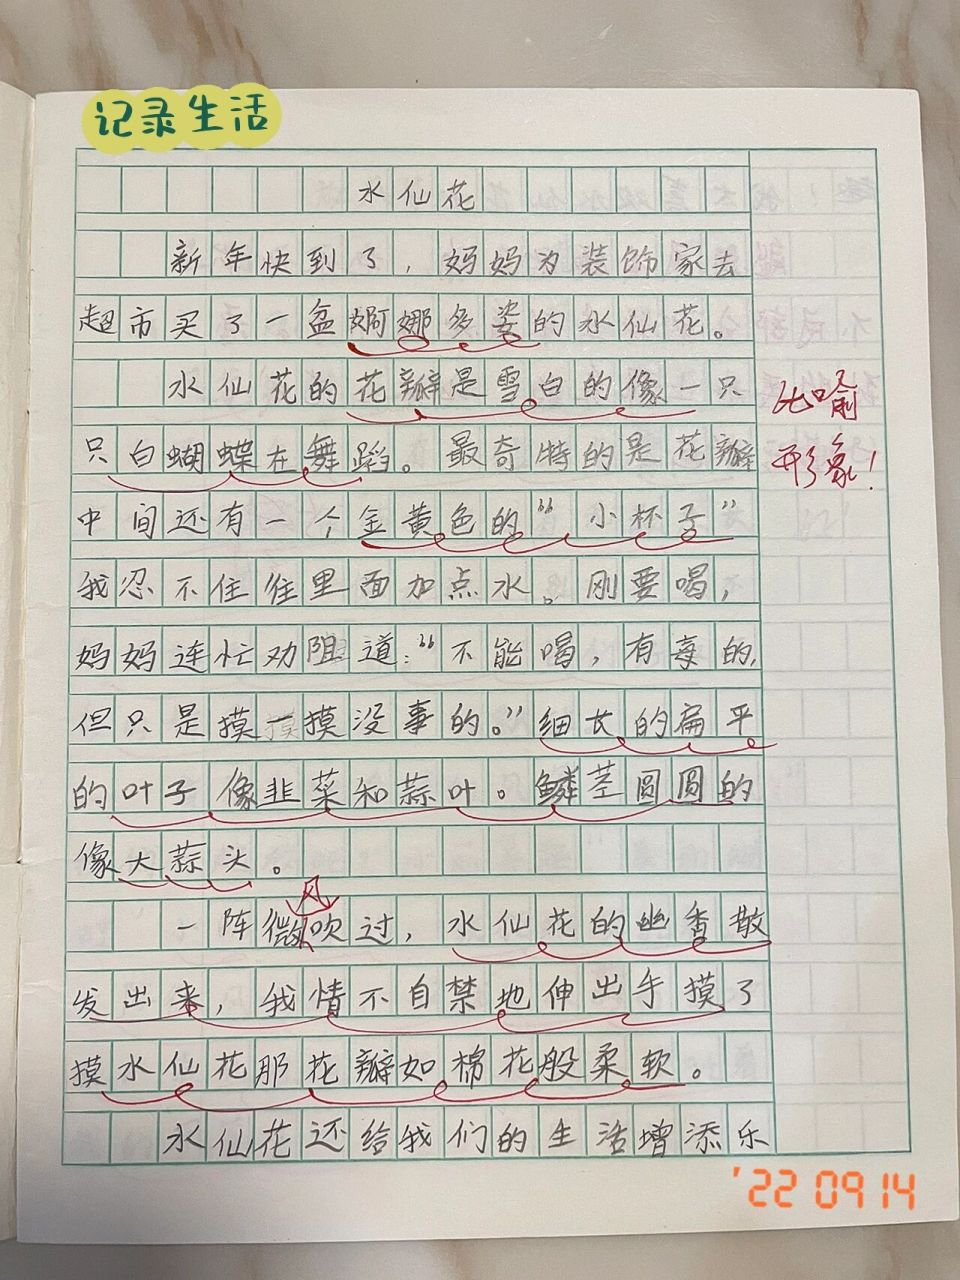 记录生活
水仙花
新年快到了，妈妈为装饰家去
超市买了一盆婀娜多姿的水仙花。
水仙花的花瓣是雪白的像一只
只白蝴蝶在舞蹈。最奇特的是花瓣
中间还有一个金黄色的“小杯子”
我忍不住往里面加点水。刚要喝，
妈妈连忙劝阻道：“不能喝，有毒的，
但只是摸一摸没事的。”细长的扁平
的叶子像韭菜和蒜叶。鳞茎圆圆的
像大蒜头。
一阵微风吹过，水仙花的幽香散
发出来，我情不自禁地伸出手摸了
摸水仙花那花瓣如棉花般柔软。
水仙花还给我们的生活增添乐
比喻
形象！
'22 09 14